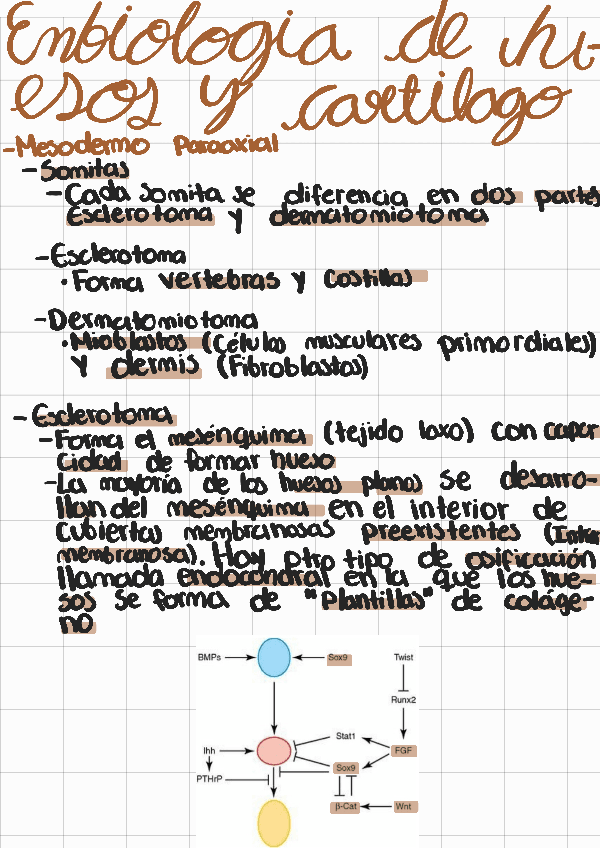 Enbiología de hu-
esos y cartílago
-Mesodermo Paraaxial
-Somitas
-Cada somita se diferencia en dos partes
Esclerotoma y dermatomiotoma
-Esclerotoma
•Forma vertebras y costillas
-Dermatomiotoma
•Mioblastos (Células musculares primordiales)
y dermis (Fibroblastos)
-Esclerotoma
-Forma el mesénquima (tejido laxo) con capa-
cidad de formar hueso
-La mayoría de los huesos planos se desarro-
llan del mesénquima en el interior de
cubiertas membranosas preexistentes (Intra
membranosa). Hay otro tipo de osificación
llamada endocondral en la que los hue-
sos se forma de "Plantillas" de coláge-
no
BMPs Sox9 Twist
Runx2
Stat1
Ihh FGF
Sox9
PTHrP
β-Cat Wnt